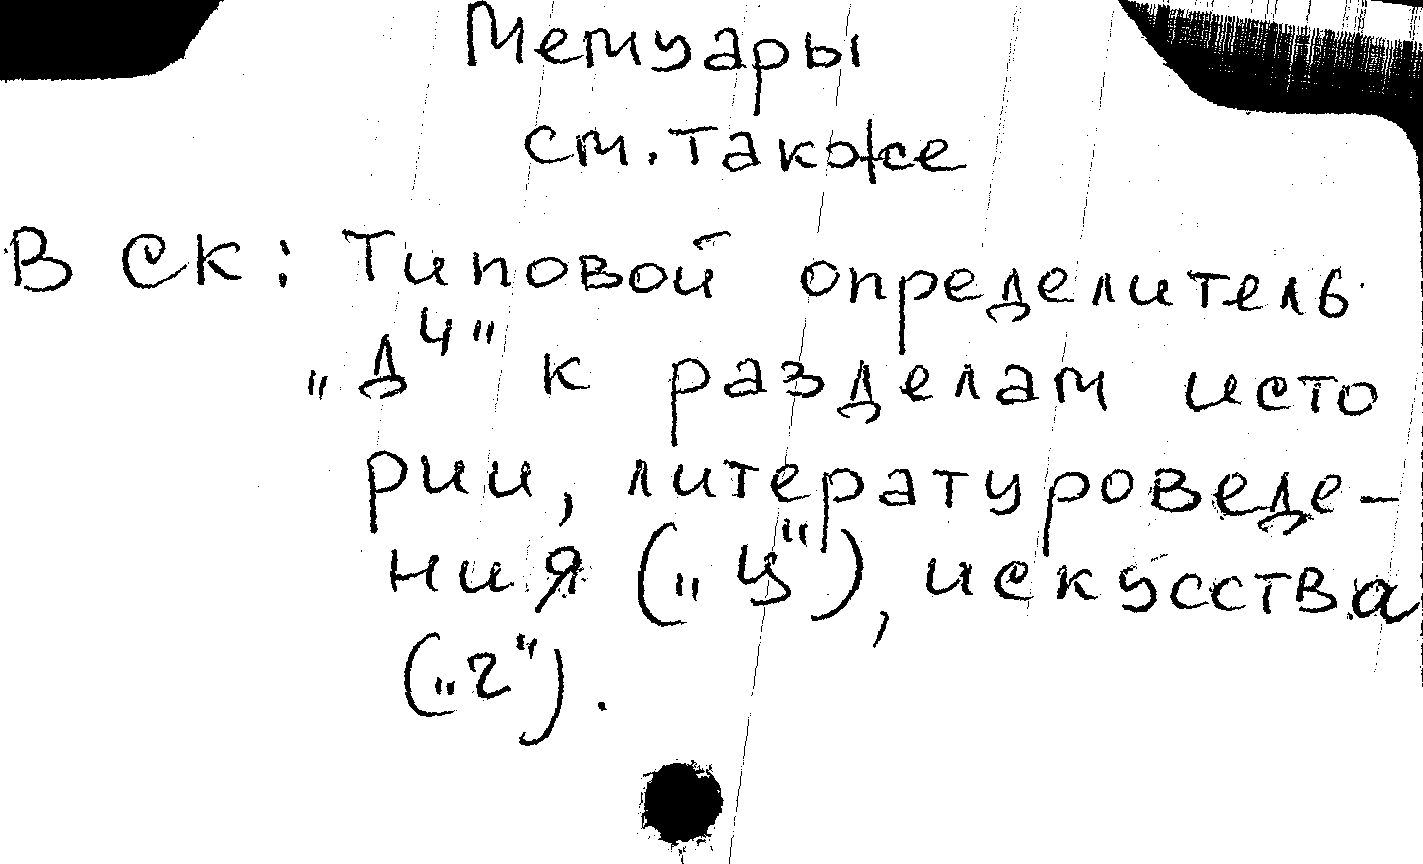 Мемуары
см. также
В СК: Типовой определитель
„Д⁴" к разделам исто
рии, литературоведе-
ния („ц"), искусства
(„2").